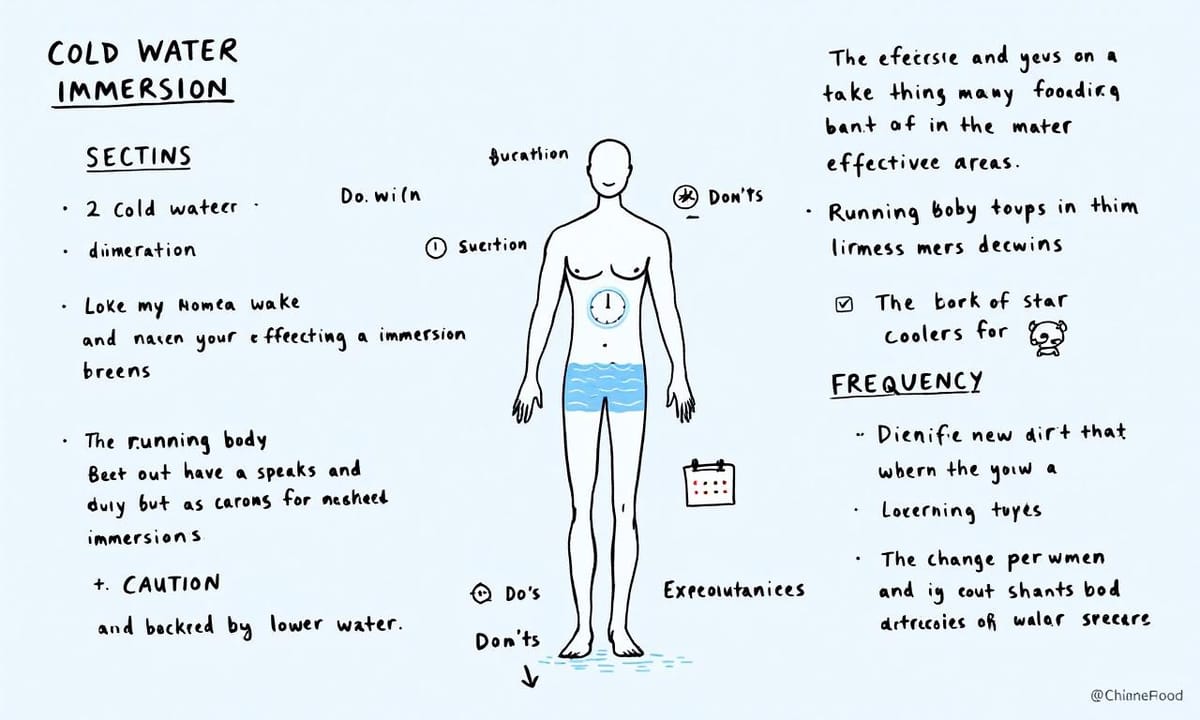 COLD WATER
IMMERSION
SECTINS
· 2 Cold wateer ·
· diimeration
· Loke my Nomea wake
and naven your effecting a immersion
breens
· The running body
Beet out have a speaks and
duly but as carons for nesheed
immersions
+. CAUTION
and backred by lower water.
Do. wiln
fucathion
Suertion
Don'ts
Do's
Don'ts
Expeoiutanices
The efeicrsie and yevs on a
take thing many foodirg
bant of in the mater
effectivee areas.
· Running boby toups in thim
lirmess mers decwins
☑ The bork of star
coolers for
FREQUENCY
Dienifie new dirt that
whern the yoiw a
· Locerning tuyes
· The change per wmen
and ig cout shants bod
artrecoies of walar srecare
@ChinneFood